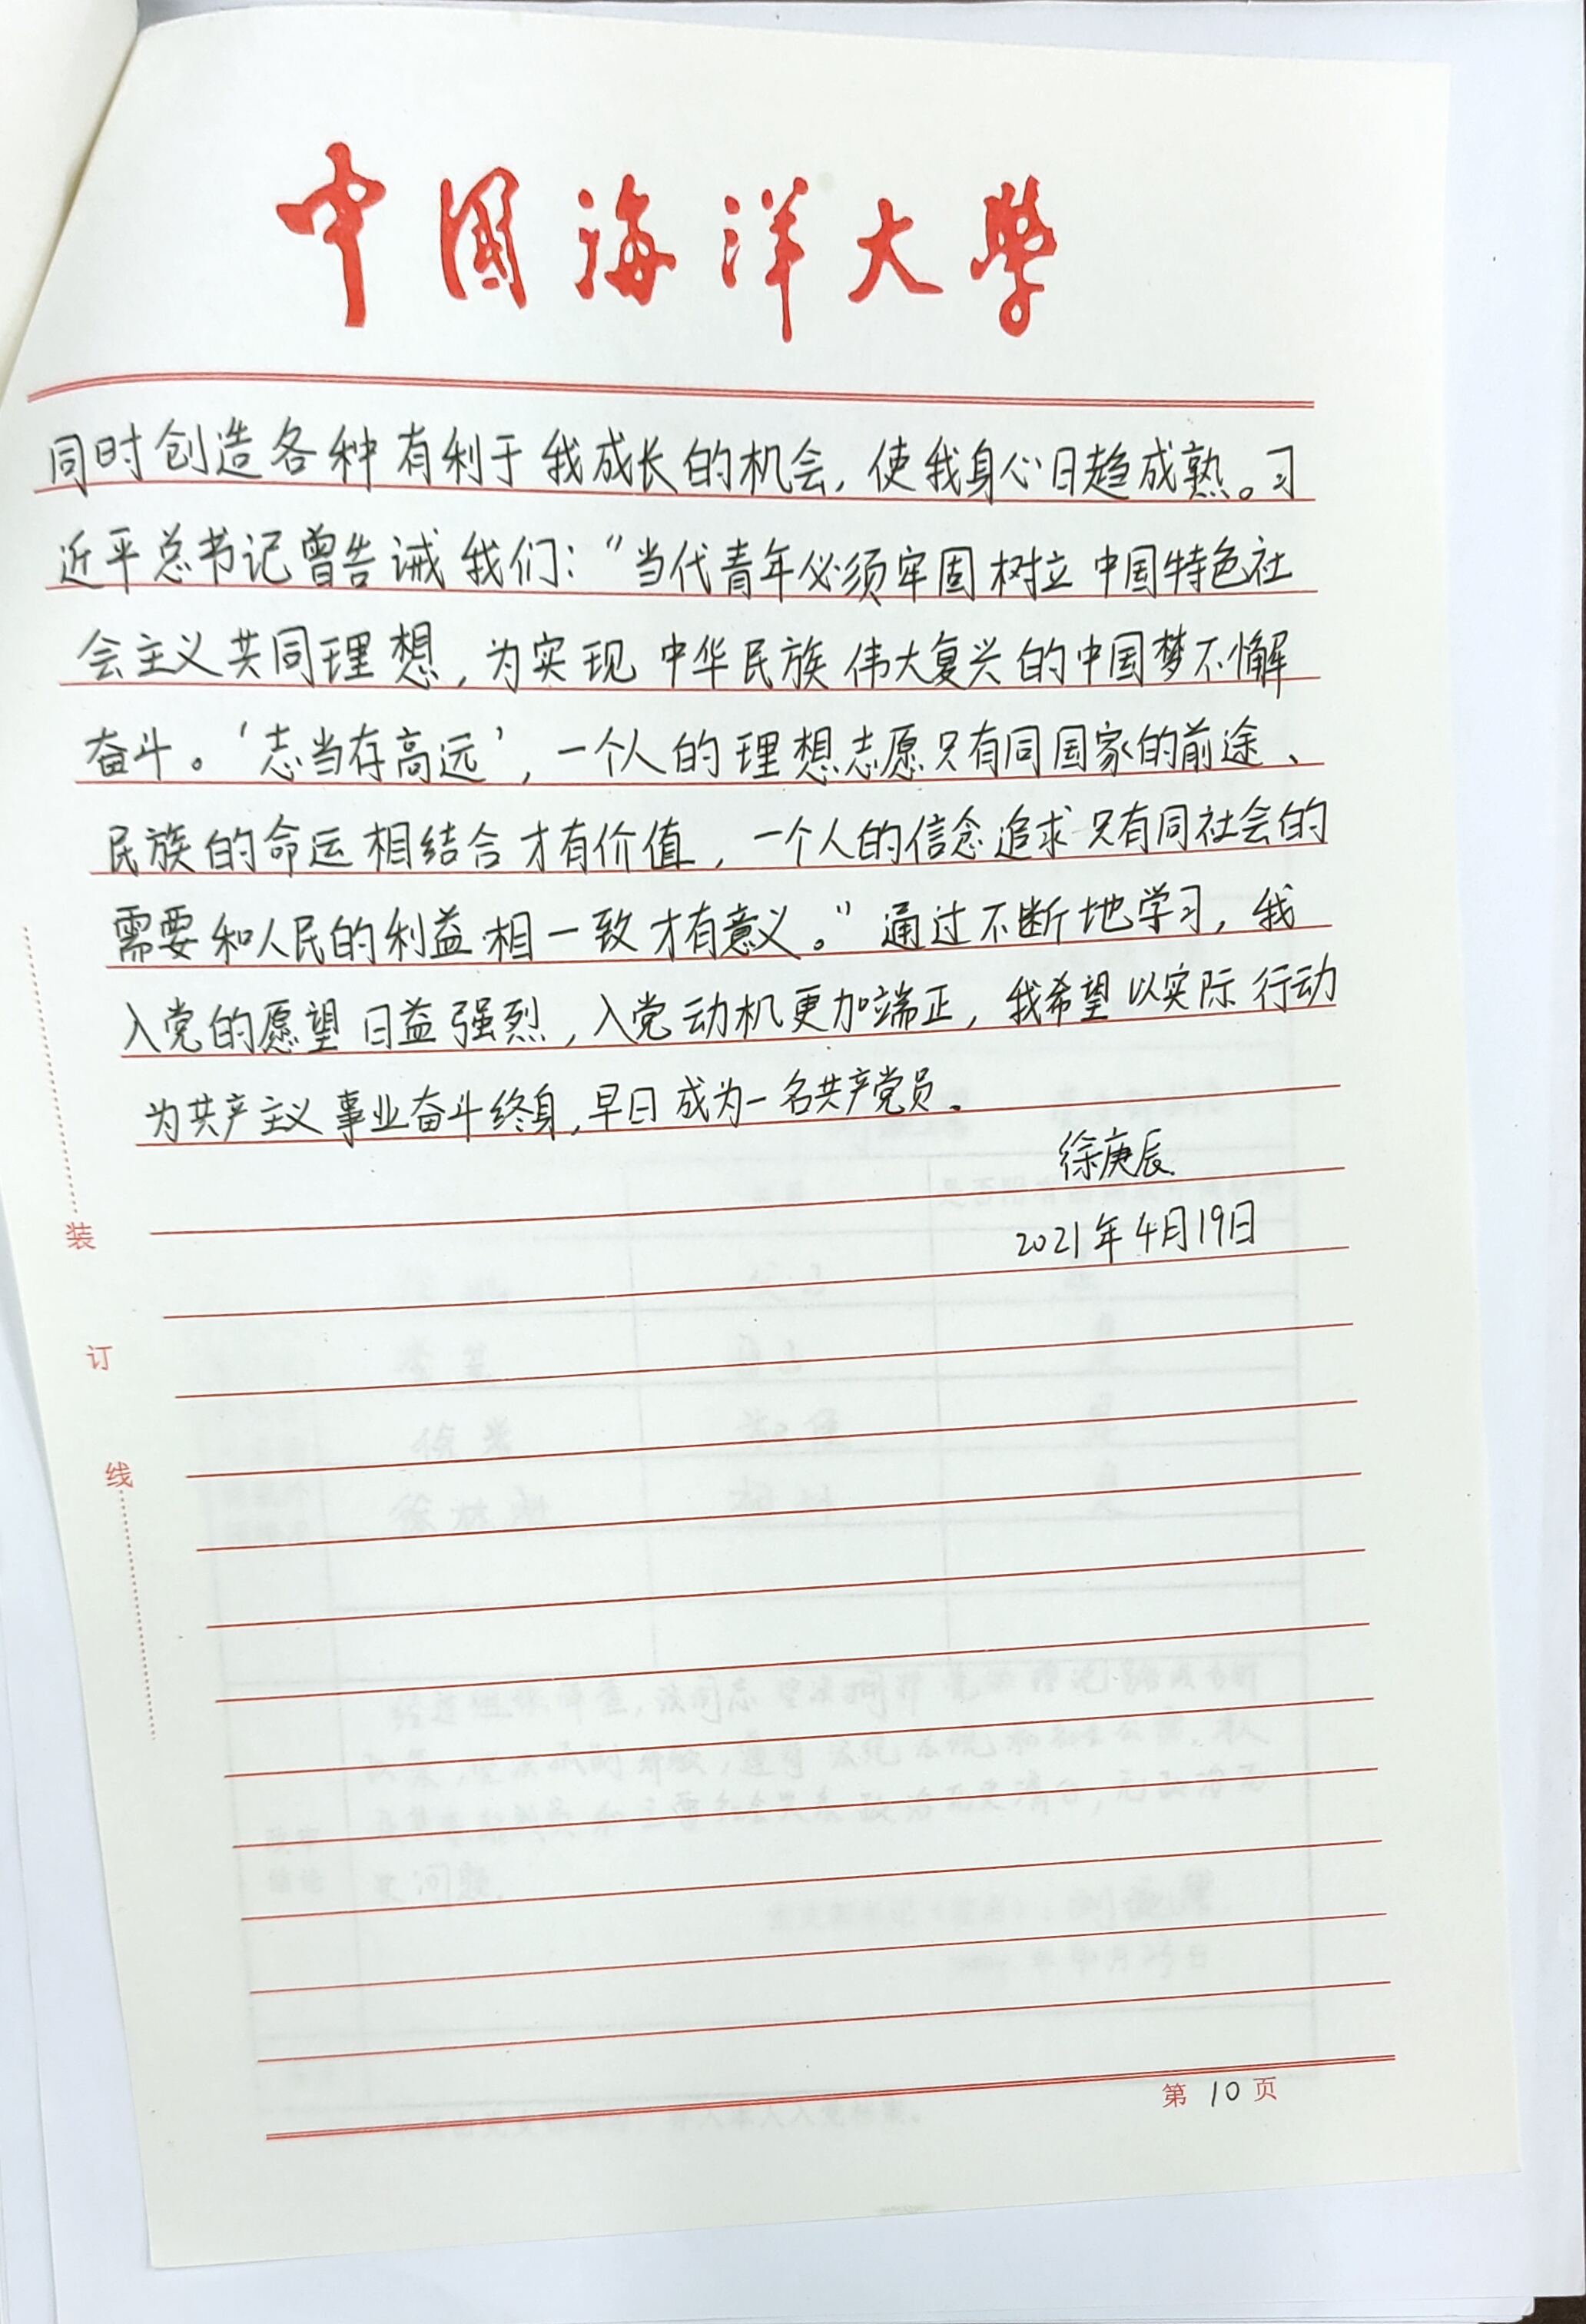 中国海洋大学
同时创造各种有利于我成长的机会，使我身心日趋成熟。习
近平总书记曾告诫我们：“当代青年必须牢固树立中国特色社
会主义共同理想，为实现中华民族伟大复兴的中国梦不懈
奋斗。‘志当存高远’，一个人的理想志愿只有同国家的前途、
民族的命运相结合才有价值，一个人的信念追求只有同社会的
需要和人民的利益相一致才有意义。”通过不断地学习，我
入党的愿望日益强烈，入党动机更加端正，我希望以实际行动
为共产主义事业奋斗终身，早日成为一名共产党员。
徐庚辰
2021年4月19日
装
订
线
第10页